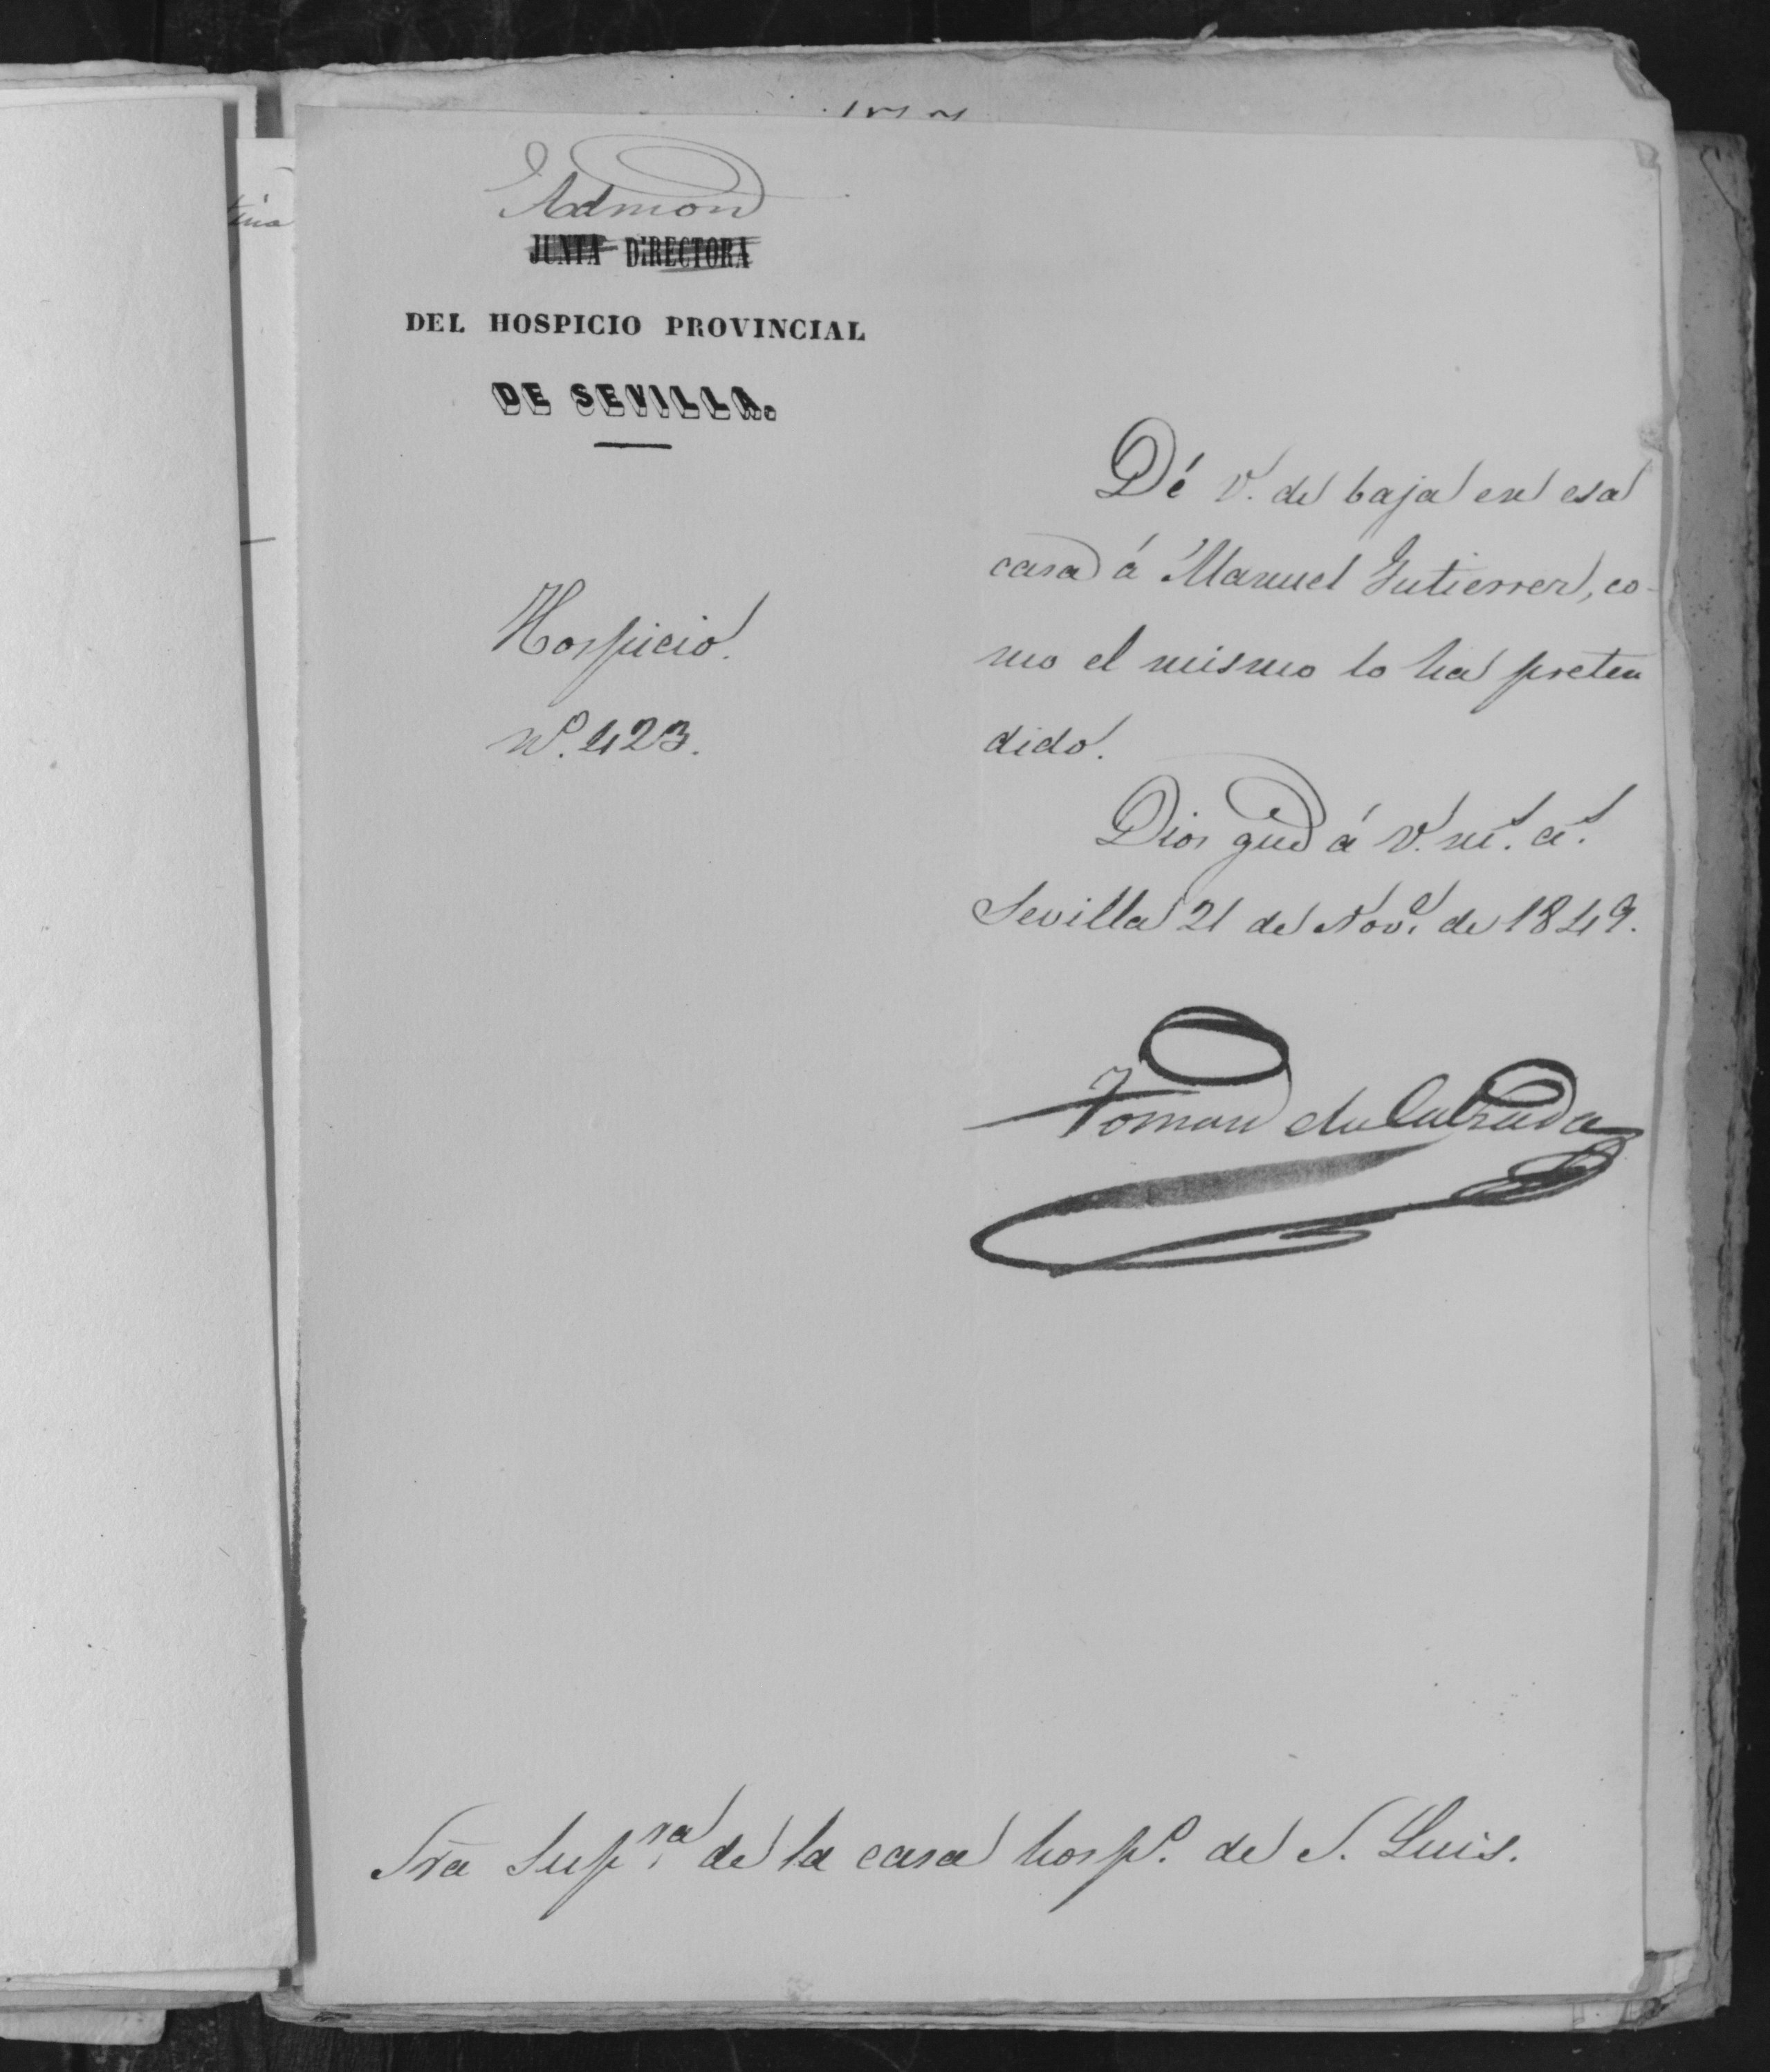 Admon
JUNTA DIRECTORA
DEL HOSPICIO PROVINCIAL
DE SEVILLA.
Hospicio.
nº. 423.
Dé V. de baja en esa
casa á Manuel Gutierrez, co-
mo el mismo lo ha preten
dido.
Dios gue á V. ms. as.
Sevilla 21 de Nove. de 1849.
de la
Sra Supra. de la casa hospº. de S. Luis.